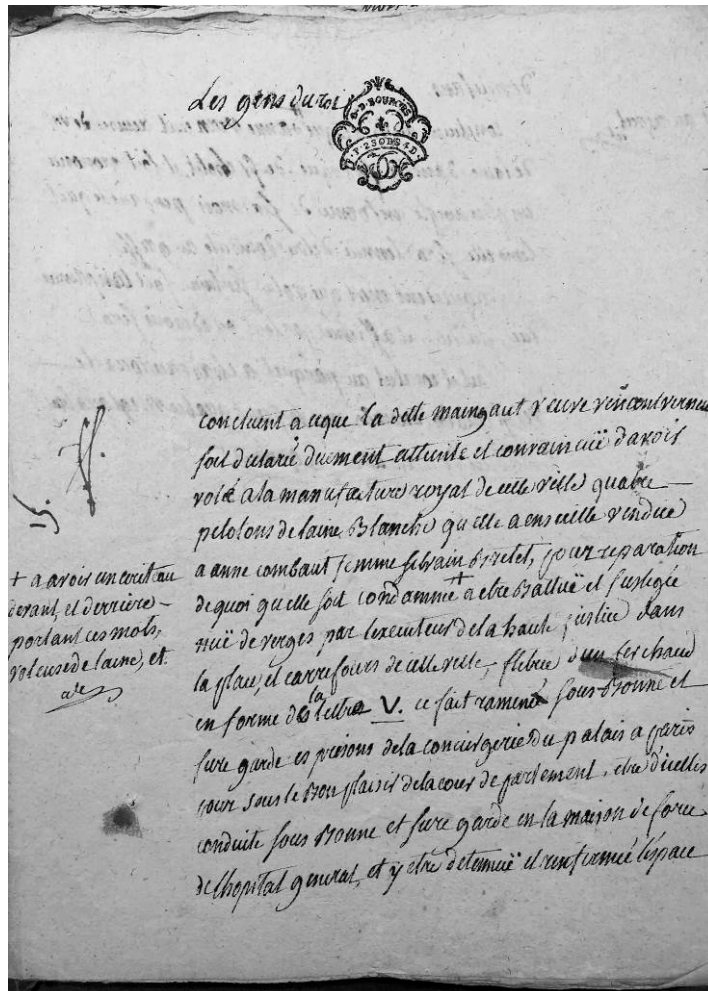 Les gens du roi
G. D. BOURGES
D. P. 2 SODS 4 D.
concluent a ceque la ditte maingaut veuve vincent verneau
soit declareé duement atteinte et convaincuë davoir
volé a la manufacture royal de cette ville quatre
pelotons de laine Blanche qu'elle a ensuitte vendue
a anne combaut femme silvain Brelet, pour reparation
de quoi qu'elle soit condamnée + a etre Battuë et fustigée
nuë de verges par l'executeur de la haute justice dans
la place, et carrefours de cette ville, fletrie d'un fer chaud
en forme de la lettre V. ce fait ramené sous Bonne et
sure garde es prisons dela conciergerie du palais a paris
pour sous le Bon plaisir dela cour de parlement, etre d'icelles
conduite sous Bonne et sure garde en la maison de force
de lhopital general, et y etre detenuë et renfermeé l'espace
15.
+ a avoir un ecriteau
devant et derriere
portant ces mots,
voleuse de laine, et